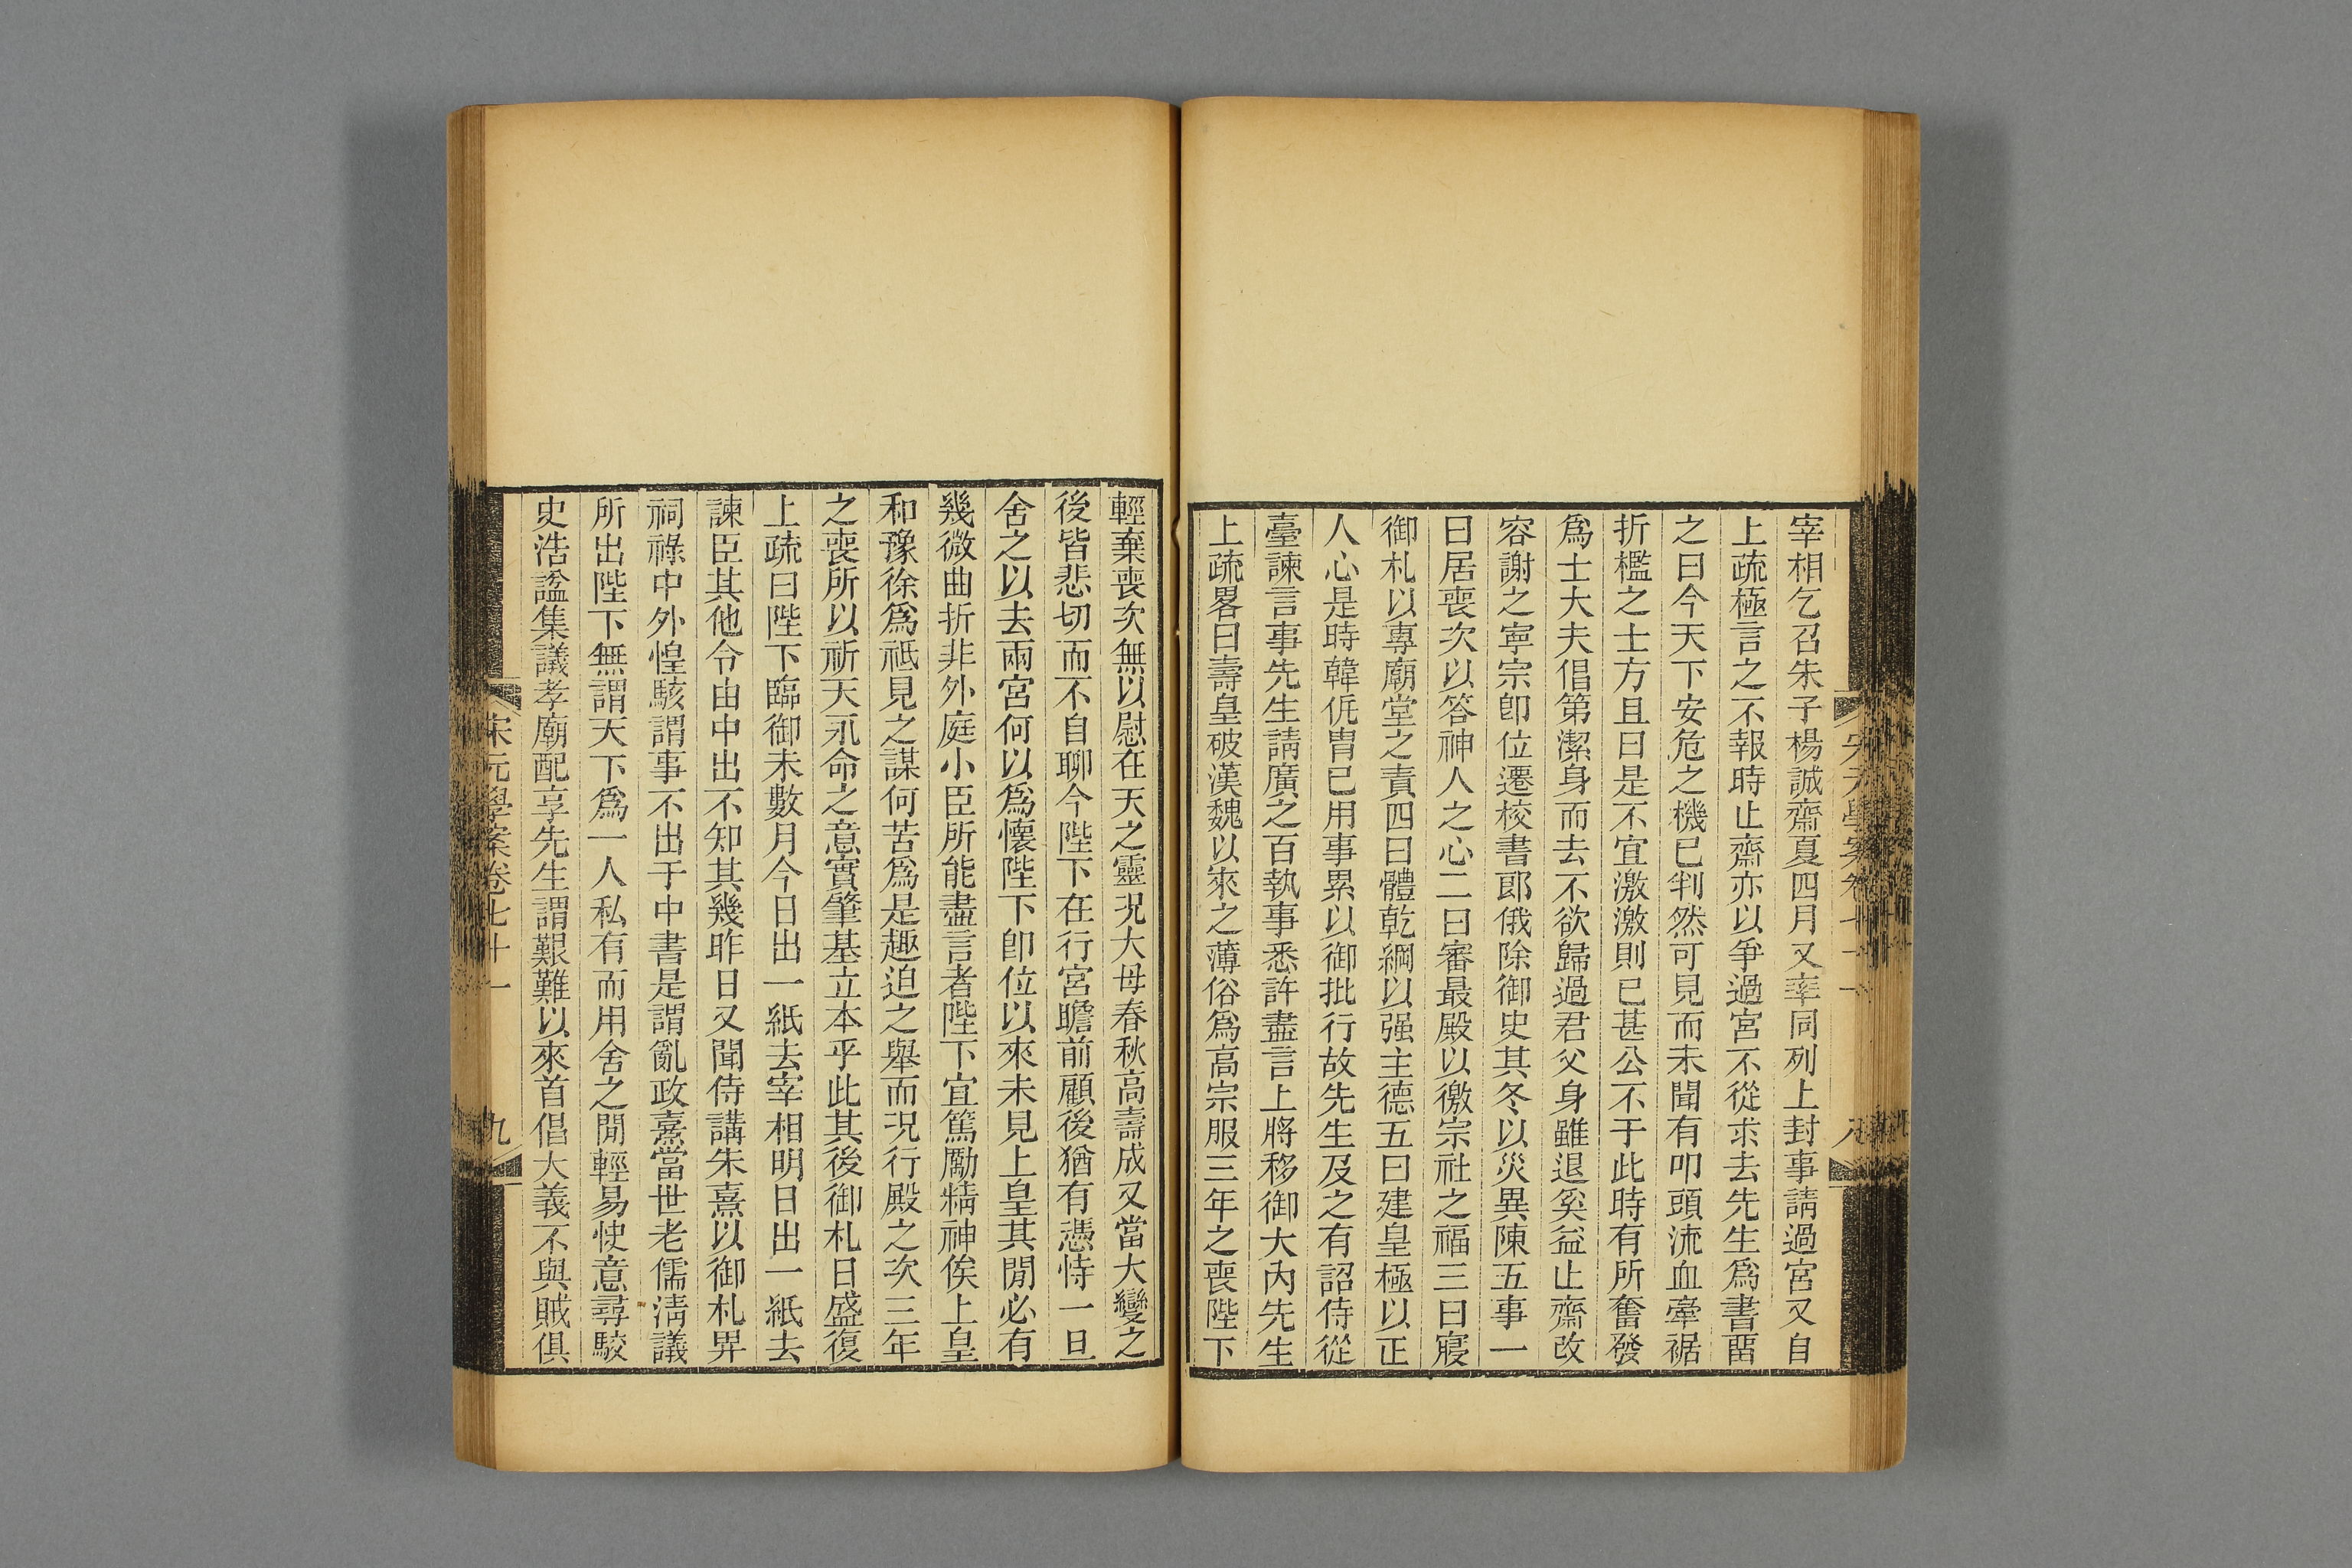 宰相乞召朱子楊誠齋夏四月又率同列上封事請過宮又自
上疏極言之不報時止齋亦以爭過宮不從求去先生爲書畱
之曰今天下安危之機已判然可見而未聞有叩頭流血牽裾
折檻之士方且曰是不宜激激則已甚公不于此時有所奮發
爲士大夫倡第潔身而去不欲歸過君父身雖退奚益止齋改
容謝之寧宗卽位遷校書郎俄除御史其冬以災異陳五事一
曰居喪次以答神人之心二曰審最殿以徼宗社之福三曰寢
御札以專廟堂之責四曰體乾綱以强主德五曰建皇極以正
人心是時韓侂冑已用事累以御批行故先生及之有詔侍從
臺諫言事先生請廣之百執事悉許盡言上將移御大內先生
上疏畧曰壽皇破漢魏以來之薄俗爲高宗服三年之喪陛下
輕棄喪次無以慰在天之靈況大母春秋高壽成又當大變之
後皆悲切而不自聊今陛下在行宮瞻前顧後猶有憑恃一旦
舍之以去兩宮何以爲懷陛下卽位以來未見上皇其閒必有
幾微曲折非外庭小臣所能盡言者陛下宜篤勵精神俟上皇
和豫徐爲祗見之謀何苦爲是趣迫之舉而況行殿之次三年
之喪所以祈天永命之意實肇基立本乎此其後御札日盛復
上疏曰陛下臨御未數月今日出一紙去宰相明日出一紙去
諫臣其他令由中出不知其幾昨日又聞侍講朱熹以御札畀
祠祿中外惶駭謂事不出于中書是謂亂政熹當世老儒清議
所出陛下無謂天下爲一人私有而用舍之閒輕易快意尋駮
史浩諡集議孝廟配享先生謂艱難以來首倡大義不與賊俱
宋元學案卷七十一
九